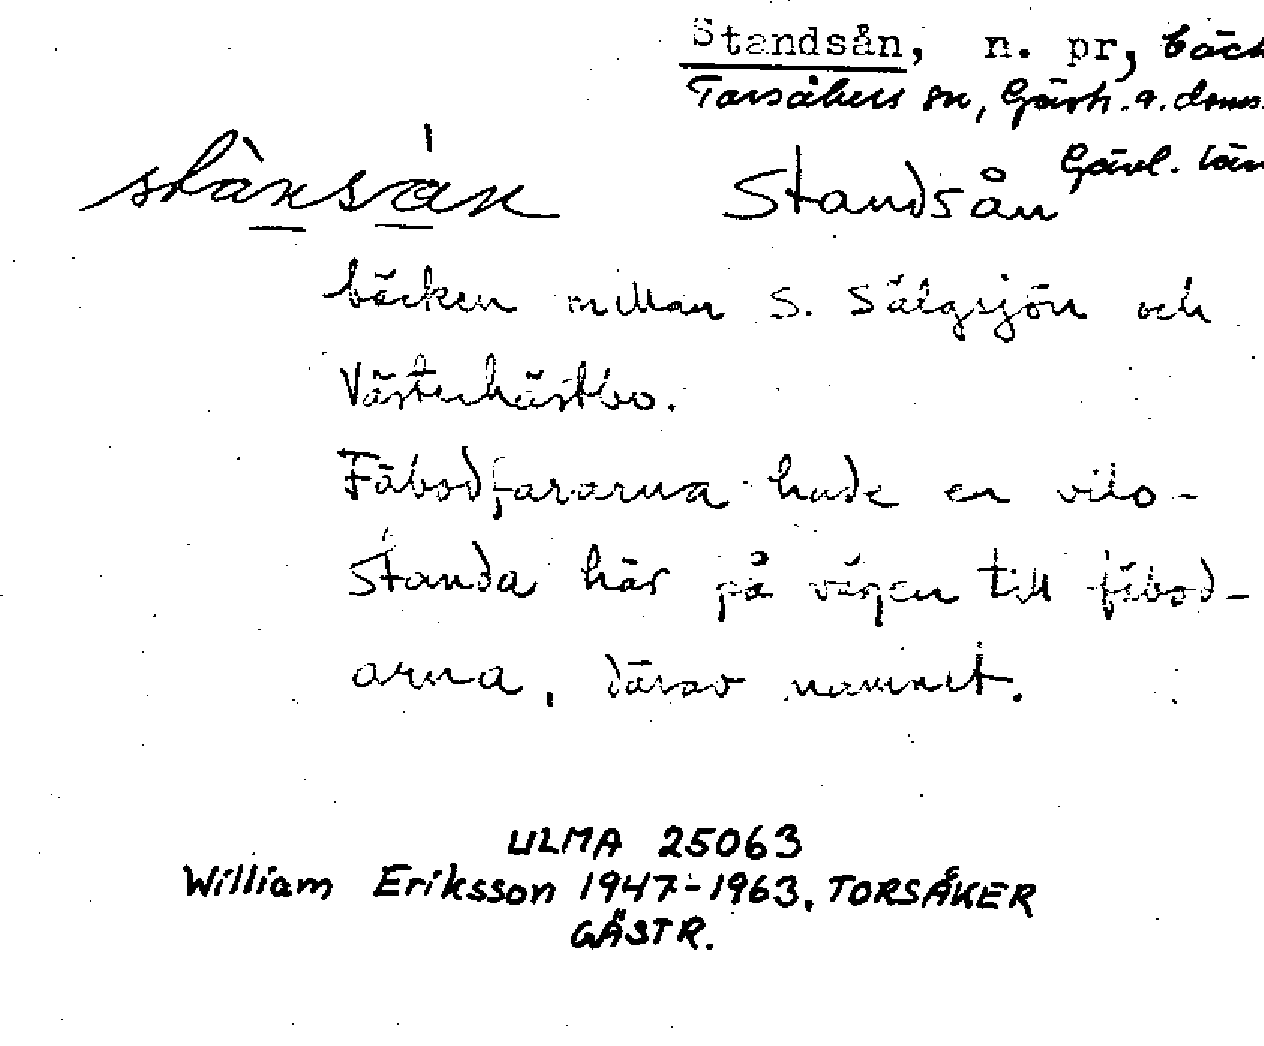 Standsån, n. pr, bäck
Torsåkers sn, Gästr. ö. doms.
Gävl. län
stànsán Standsån
bäcken mellan S. Sälgsjön och
Västerhästbo.
Fäbodfararna hade en vilo-
standa här på vägen till fäbod-
arna, därav namnet.
ULMA 25063
William Eriksson 1947-1963. TORSÅKER
GÄSTR.